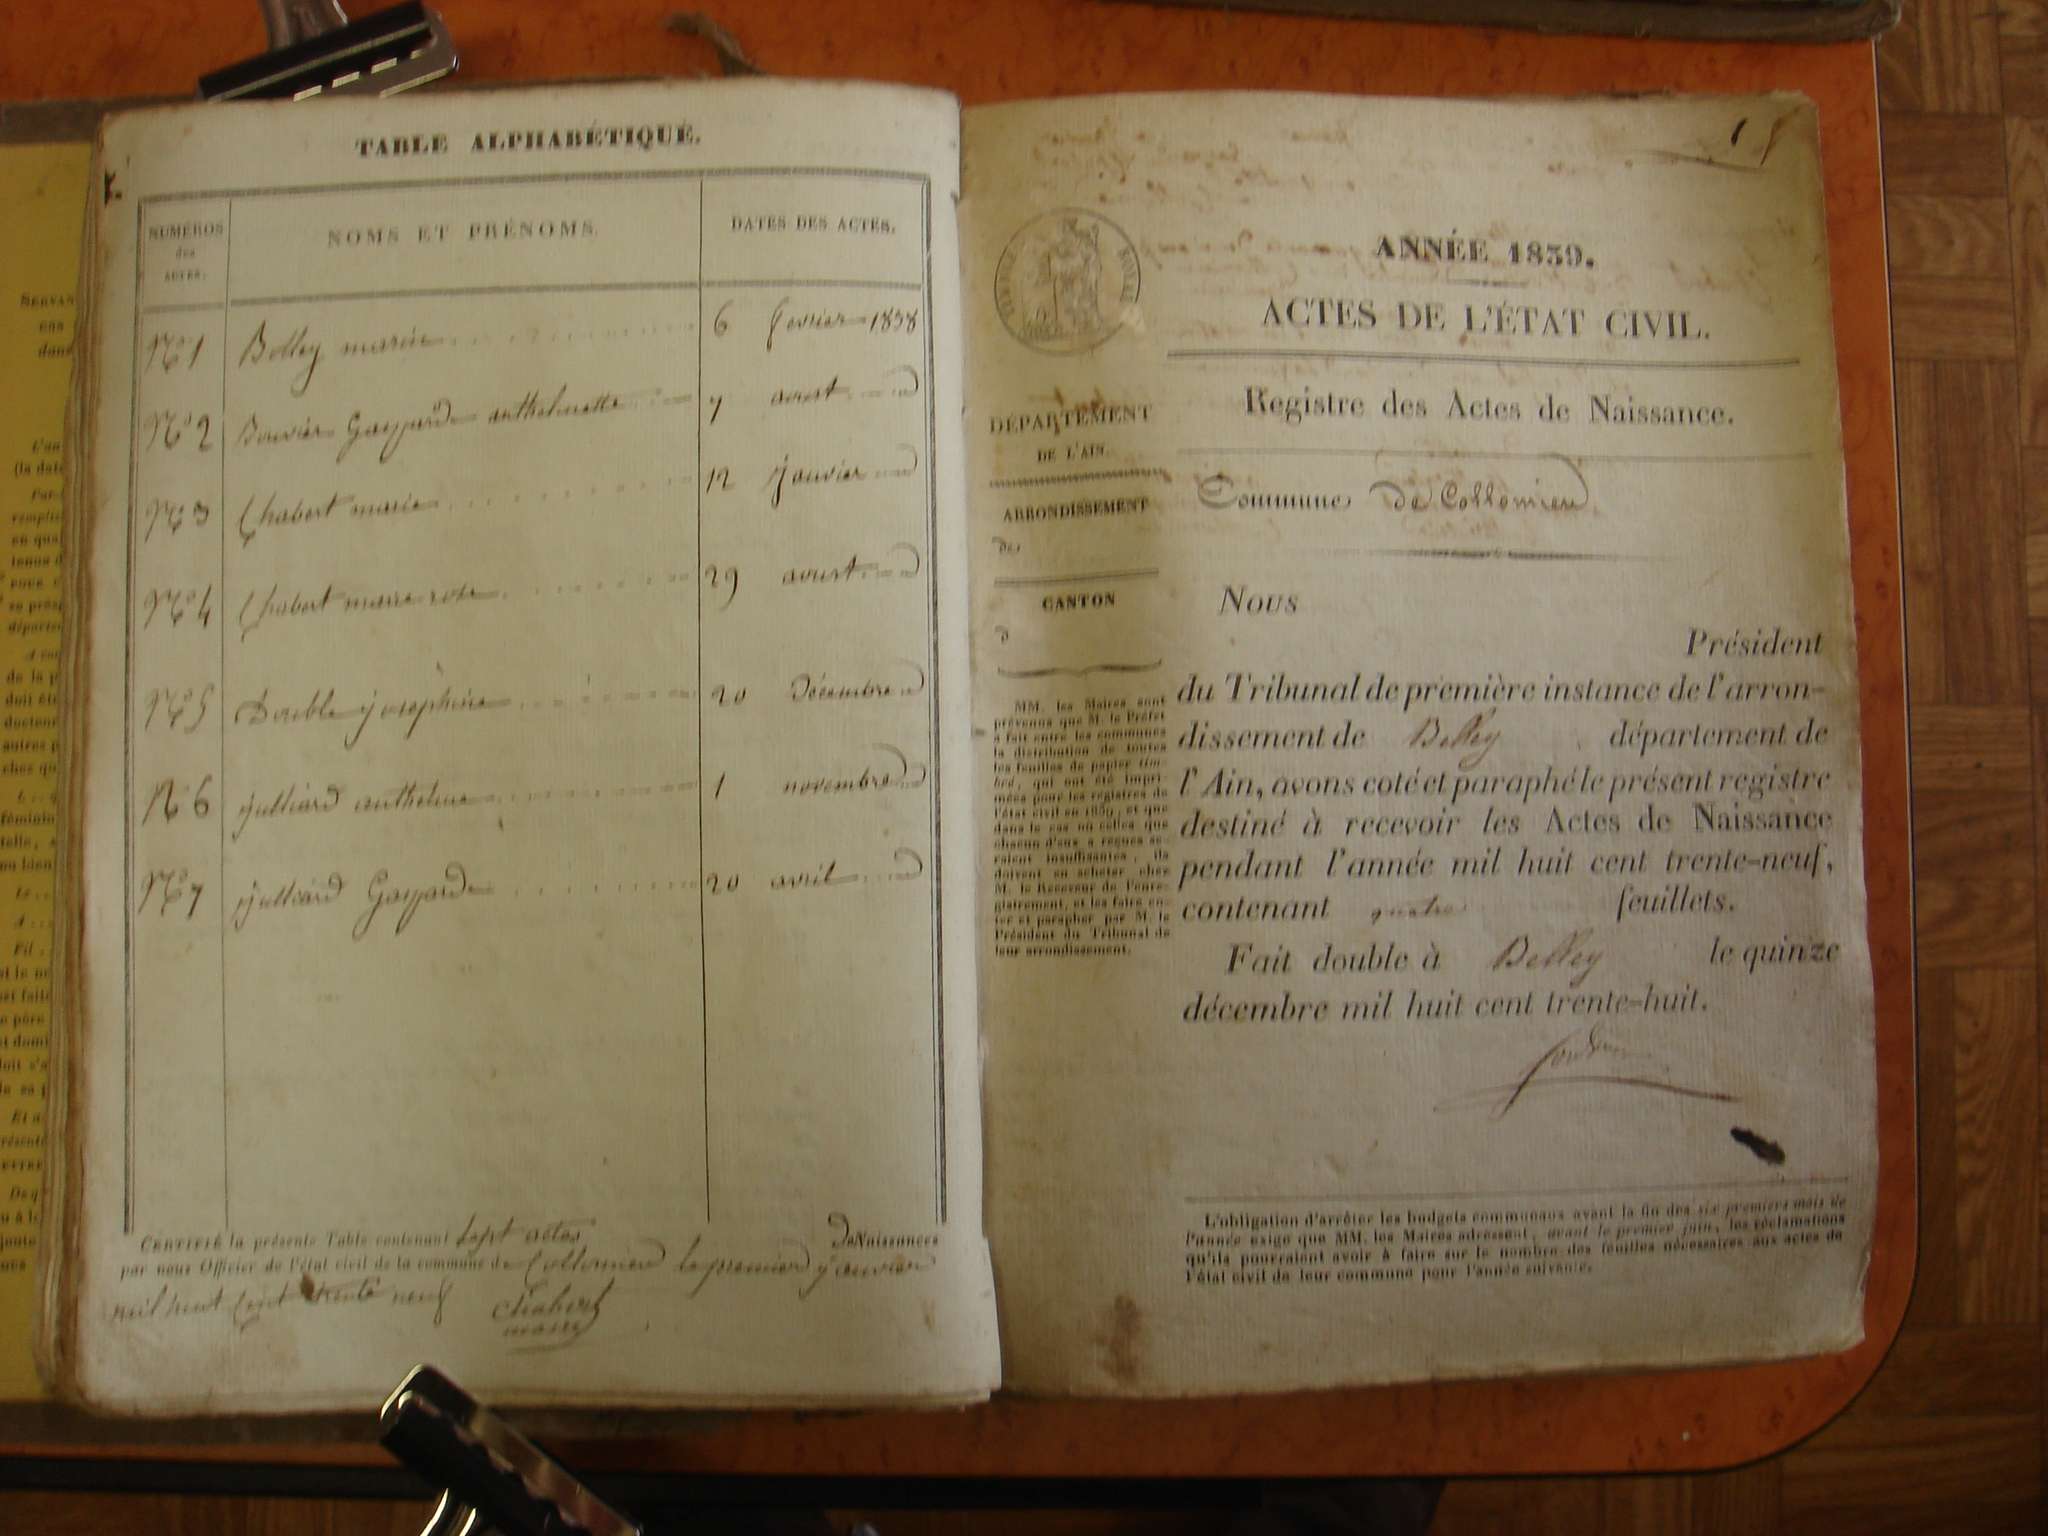 TABLE ALPHABÉTIQUE.
NUMÉROS
des
ACTES.
NOMS ET PRÉNOMS.
DATES DES ACTES.
N.o 1 Bolley marie 6 fevrier 1838
N.o 2 Bouvier Gasparde anthelmette 7 aoust
N.o 3 Chabert marie 12 janvier
N.o 4 Chabert marie rose 29 aoust
N.o 5 Double josephine 20 Décembre
N.o 6 julliard anthelme 1 novembre
N.o 7 julliard Gasparde 20 avril
CERTIFIÉ la présente Table contenant Sept actes De Naissances
par nous Officier de l'état civil de la commune de Collomieu le premier janvier
mil huit Cent trente neuf
Chabert
maire
1
ANNÉE 1839.
ACTES DE L'ÉTAT CIVIL.
Registre des Actes de Naissance.
Commune de Collomieu
DÉPARTEMENT
DE L'AIN.
ARRONDISSEMENT
de
CANTON
d
MM. les Maires sont
prévenus que M. le Préfet
a fait entre les communes
la distribution de toutes
les feuilles de papier tim-
bré, qui ont été impri-
mées pour les registres de
l'état civil en 1839, et que
dans le cas où celles que
chacun d'eux a reçues se-
raient insuffisantes, ils
doivent en acheter chez
M. le Receveur de l'enre-
gistrement, et les faire co-
ter et parapher par M. le
Président du Tribunal de
leur arrondissement.
Nous
Président
du Tribunal de première instance de l'arron-
dissement de Belley département de
l'Ain, avons coté et paraphé le présent registre
destiné à recevoir les Actes de Naissance
pendant l'année mil huit cent trente-neuf,
contenant quatre feuillets.
Fait double à Belley le quinze
décembre mil huit cent trente-huit.
L'obligation d'arrêter les budgets communaux avant la fin des six premiers mois de
l'année exige que MM. les Maires adressent, avant le premier juin, les réclamations
qu'ils pourraient avoir à faire sur le nombre des feuilles nécessaires aux actes de
l'état civil de leur commune pour l'année suivante.